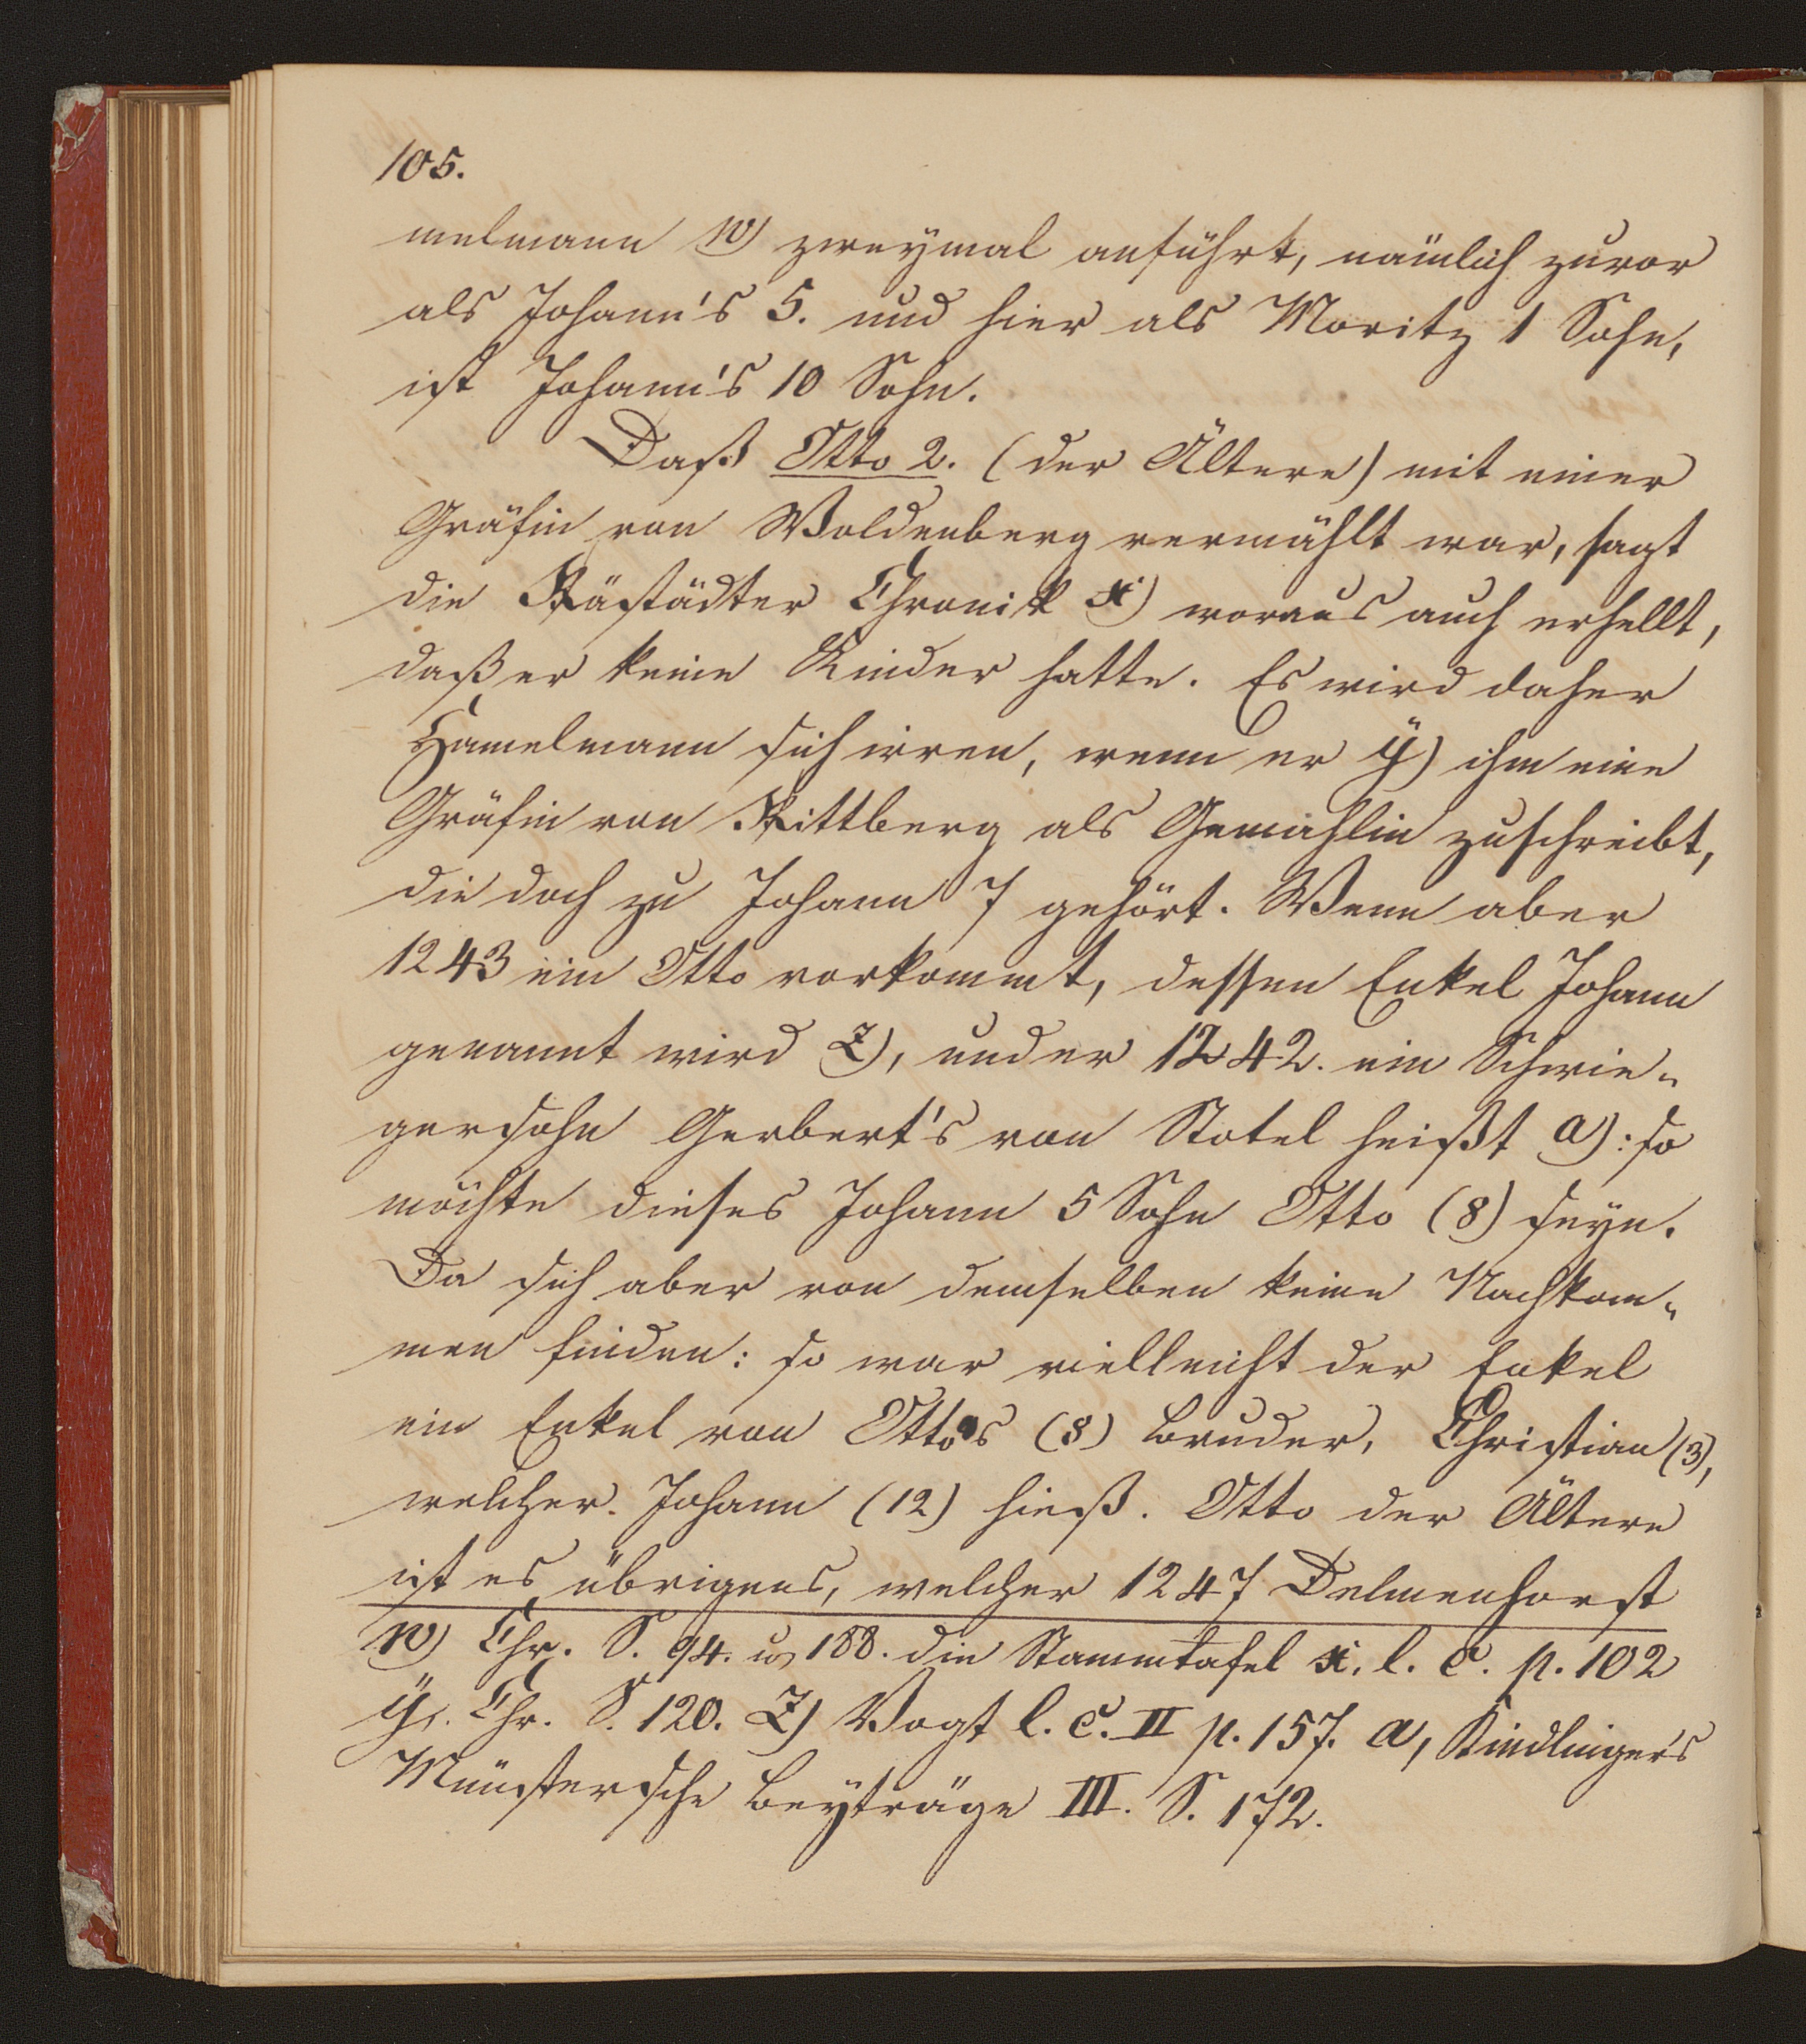 105.
melmann w) zweymal anführt, nämlich zuvor
als Johann's 5. und hier als Moritz 1 Sohn,
ist Johann's 10 Sohn.
Daß Otto 2. (der Ältere) mit einer
Gräfin von Woldenberg vermählt war, sagt
die Rästädter Chronik x) woraus auch erhellt,
daß er keine Kinder hatte. Es wird daher
Hamelmann sich irren, wenn er ÿ) ihm eine
Gräfin von Rittberg als Gemahlin zuschreibt,
die doch zu Johann 7 gehört. Wenn aber
1243 ein Otto vorkommt, dessen Enkel Johann
genannt wird z), und er 1242. ein Schwie-
gersohn Gerbert's von Stotel heißt a): so
möchte dieses Johann 5 Sohn Otto (8) seyn.
Da sich aber von demselben keine Nachkom-
men finden: so war vielleicht der Enkel
ein Enkel von Ottos (8) Bruder, Christian (3),
welcher Johann (12) hieß. Otto der Ältere
ist es übrigens, welcher 1247 Delmenhorst
w) Chr. S. 94. u 188. die Stammtafel x. l. c. p. 102
ÿ. Chr. S. 120. z) Vogt l. c. II p. 157. a, Kindlinger's
Münstersche Beyträge III. S. 172.